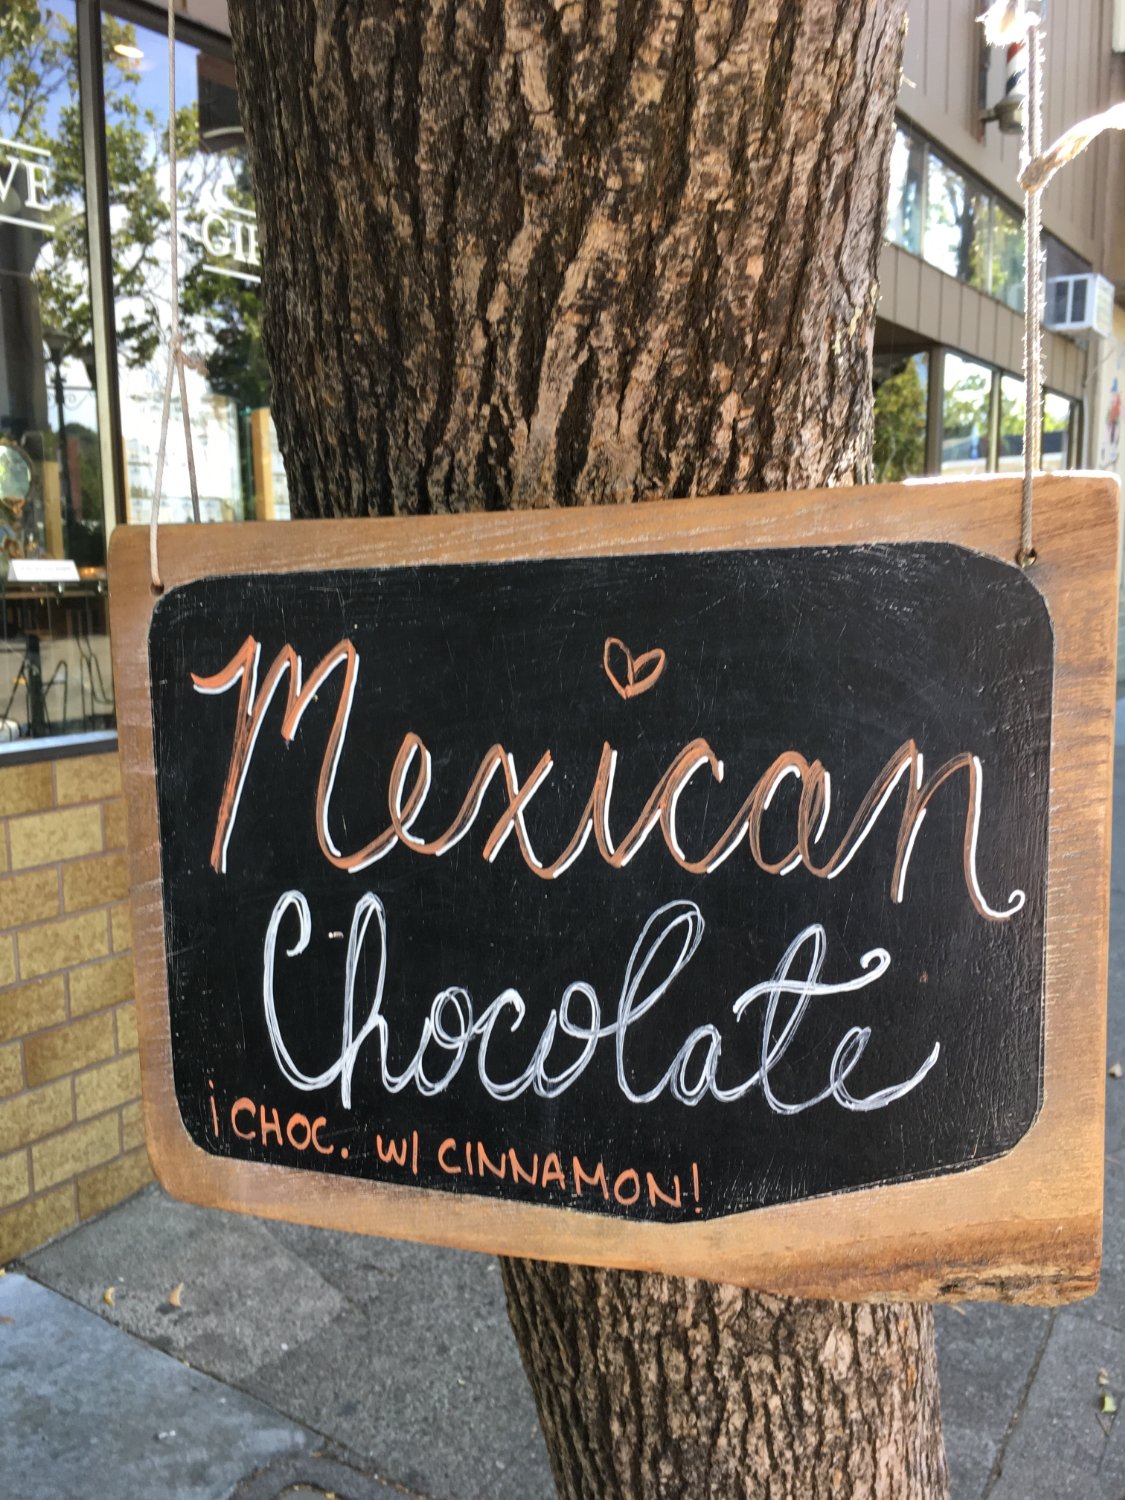 Mexican
Chocolate
¡CHOC. W/ CINNAMON!